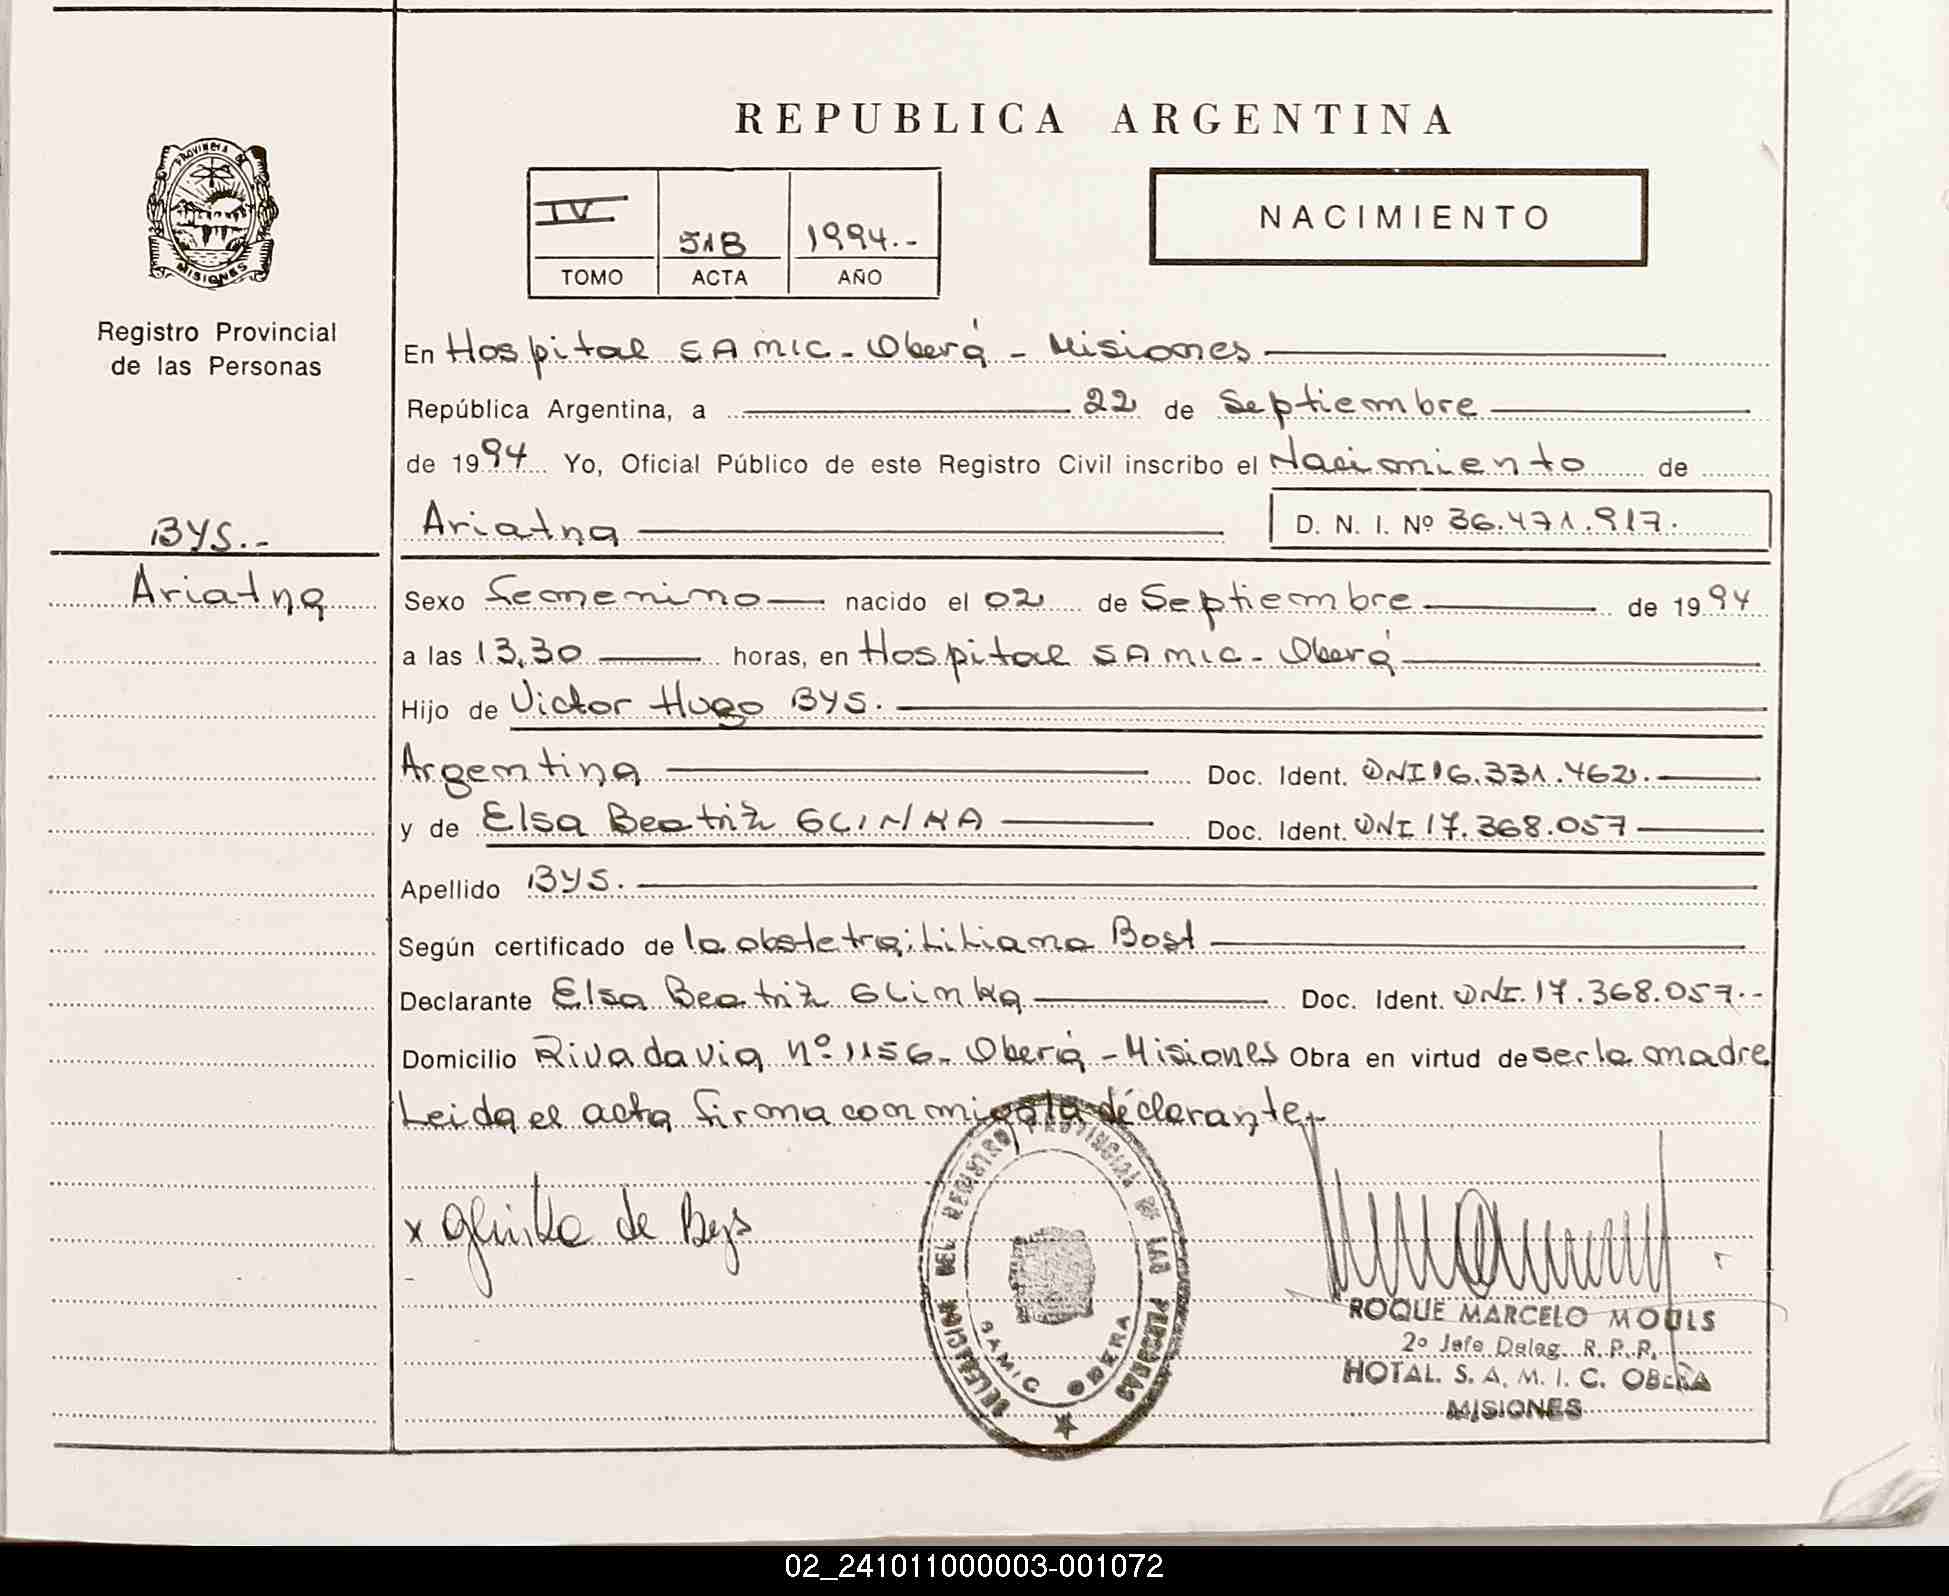 REPUBLICA ARGENTINA
PROVINCIA DE
MISIONES
Registro Provincial
de las Personas
IV 518 1994.-
TOMO ACTA AÑO
NACIMIENTO
En Hospital SAMIC - Oberá - Misiones
República Argentina, a 22 de Septiembre
de 1994 Yo, Oficial Público de este Registro Civil inscribo el Nacimiento de
BYS.-
Ariatna D. N. I. Nº 36.471.917.
Ariatna
Sexo Femenino nacido el 02 de Septiembre de 1994
a las 13,30 horas, en Hospital SAMIC - Oberá
Hijo de Victor Hugo BYS.
Argentina Doc. Ident. DNI 16.331.462.
y de Elsa Beatriz GLINKA Doc. Ident. DNI 17.368.057
Apellido BYS.
Según certificado de la obstetra; Liliana Bost
Declarante Elsa Beatriz Glinka Doc. Ident. DNI. 17.368.057.-
Domicilio Rivadavia Nº 1156 - Oberá - Misiones Obra en virtud de ser la madre
Leida el acta firma conmigo la declarante.
x Glinka de Bys
DELEGACION DEL REGISTRO PROVINCIAL DE LAS PERSONAS
SAMIC OBERA
ROQUE MARCELO MOULS
2º Jefe Deleg. R. P. P.
HOTAL. S. A. M. I. C. OBERA
MISIONES
02_241011000003-001072